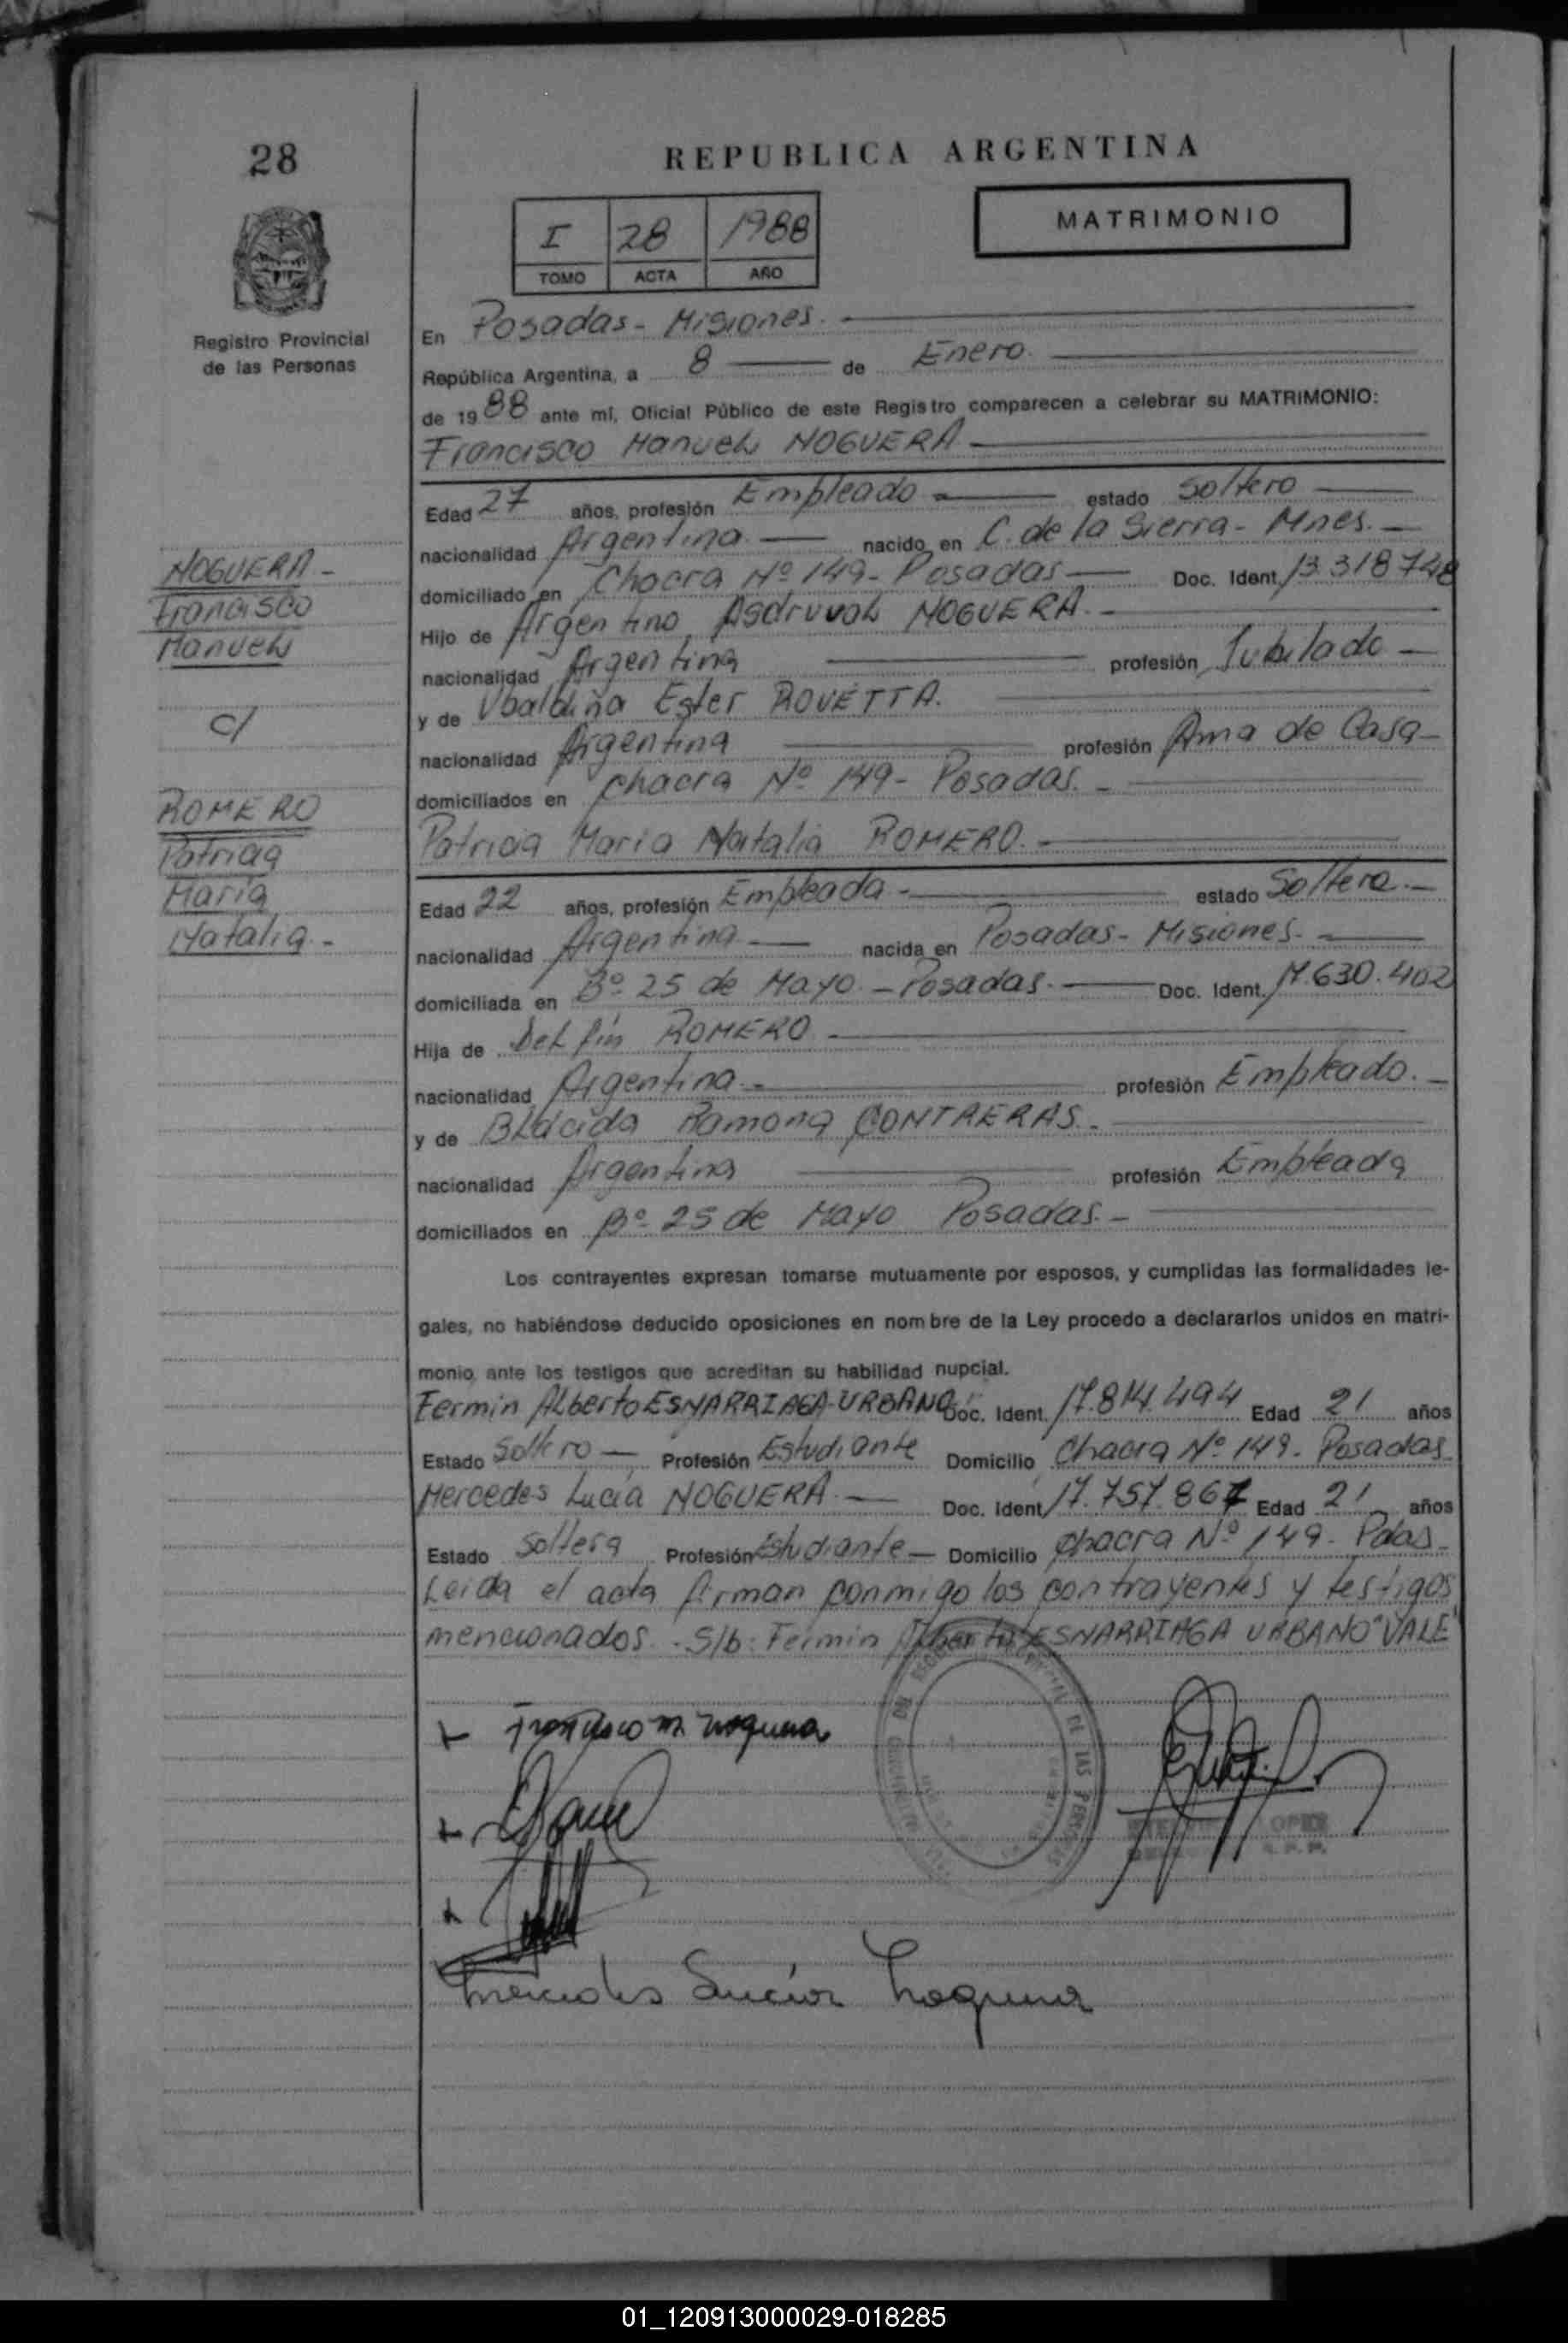 28
REPUBLICA ARGENTINA
I 28 1988
TOMO ACTA AÑO
MATRIMONIO
Registro Provincial
de las Personas
En Posadas - Misiones.
República Argentina, a 8 de Enero.
de 1988 ante mí, Oficial Público de este Registro comparecen a celebrar su MATRIMONIO:
Francisco Manuel NOGUERA
Edad 27 años, profesión Empleado - estado Soltero
nacionalidad Argentina. nacido en C. de la Sierra - Mnes. -
domiciliado en Chacra Nº 149 - Posadas Doc. Ident. 13.318.748
Hijo de Argentino Asdruval NOGUERA. -
nacionalidad Argentina profesión Jubilado -
y de Ubaldina Ester ROVETTA.
nacionalidad Argentina profesión Ama de Casa -
domiciliados en Chacra Nº 149 - Posadas. -
NOGUERA -
Francisco
Manuel
c/
ROMERO
Patricia
María
Natalia. -
Patricia María Natalia ROMERO. -
Edad 22 años, profesión Empleada - estado Soltera. -
nacionalidad Argentina - nacida en Posadas - Misiones. -
domiciliada en Bº 25 de Mayo. - Posadas. - Doc. Ident. 17.630.402
Hija de Delfín ROMERO
nacionalidad Argentina. - profesión Empleado. -
y de Blácida Ramona CONTRERAS. -
nacionalidad Argentina profesión Empleada
domiciliados en Bº 25 de Mayo Posadas. -
Los contrayentes expresan tomarse mutuamente por esposos, y cumplidas las formalidades le-
gales, no habiéndose deducido oposiciones en nombre de la Ley procedo a declararlos unidos en matri-
monio ante los testigos que acreditan su habilidad nupcial.
Fermin Alberto ESNARRIAGA-URBANO Doc. Ident. 17.814.494 Edad 21 años
Estado Soltero - Profesión Estudiante Domicilio Chacra Nº 149. Posadas
Mercedes Lucía NOGUERA - Doc. Ident. 17.757.867 Edad 21 años
Estado Soltera Profesión Estudiante - Domicilio Chacra Nº 149. Pdas.
Leída el acta firman conmigo los contrayentes y testigos
mencionados. - S/b: Fermin Alberto ESNARRIAGA URBANO "VALE"
Francisco M. Noguera
DE LAS PERSONAS
Mercedes Lucía Noguera
01_120913000029-018285